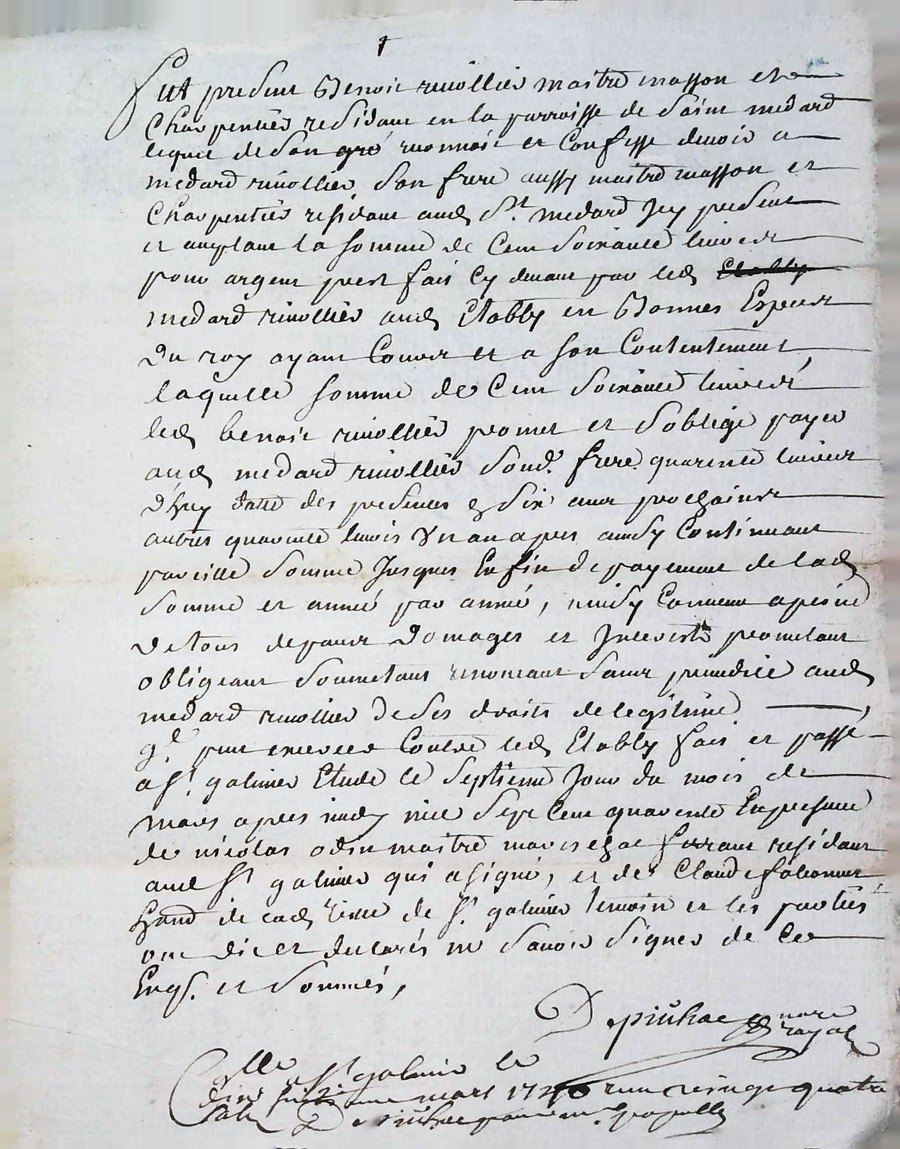 Fut present Benoit rivollier maitre masson et
Charpentier residant en la parroisse de Saint medard
lequel de son gré reconnoit et Confesse devoir a
medard rivollier son frere aussy maitre masson et
Charpentier residant aud St. medard Icy present
et acceptant la somme de Cent soixante livres
pour argent prest fait cy devant par led Etably
medard rivollier aud Etably en Bonnes Especes
du roy ayant Cours et a son Contentement
laquelle somme de Cent soixante livres
led benoit rivollier promet et s'oblige payer
aud medard rivollier sond. frere quarente livres
d'huy datte des presentes en six ans prochaines
autres quarente livres Un an apres ainsy Continuant
pareille somme Jusques Enfin de payement de lad
somme et année par année, ainsy Convenu a peine
de tous depens domages et Interests prometant
obligeant soumetant renoncant sans prejudice aud
medard rivollier de ses droits de legitime
qu'il peut exercer Contre led Etably fait et passé
a St. galmier Etude le septieme Jour du mois de
mars apres midy mil sept cent quarente En presence
de nicolas odin maitre marechal ferrant residant
aud St galmier qui a signé, et de Claude
de lad ville de St. galmier temoin et les parties
ont dit et declarés ne savoir signer de Ce
Enqs. et sommés,
nore
royal
Collé a St. galmier le
mars 1740 vingt quatre